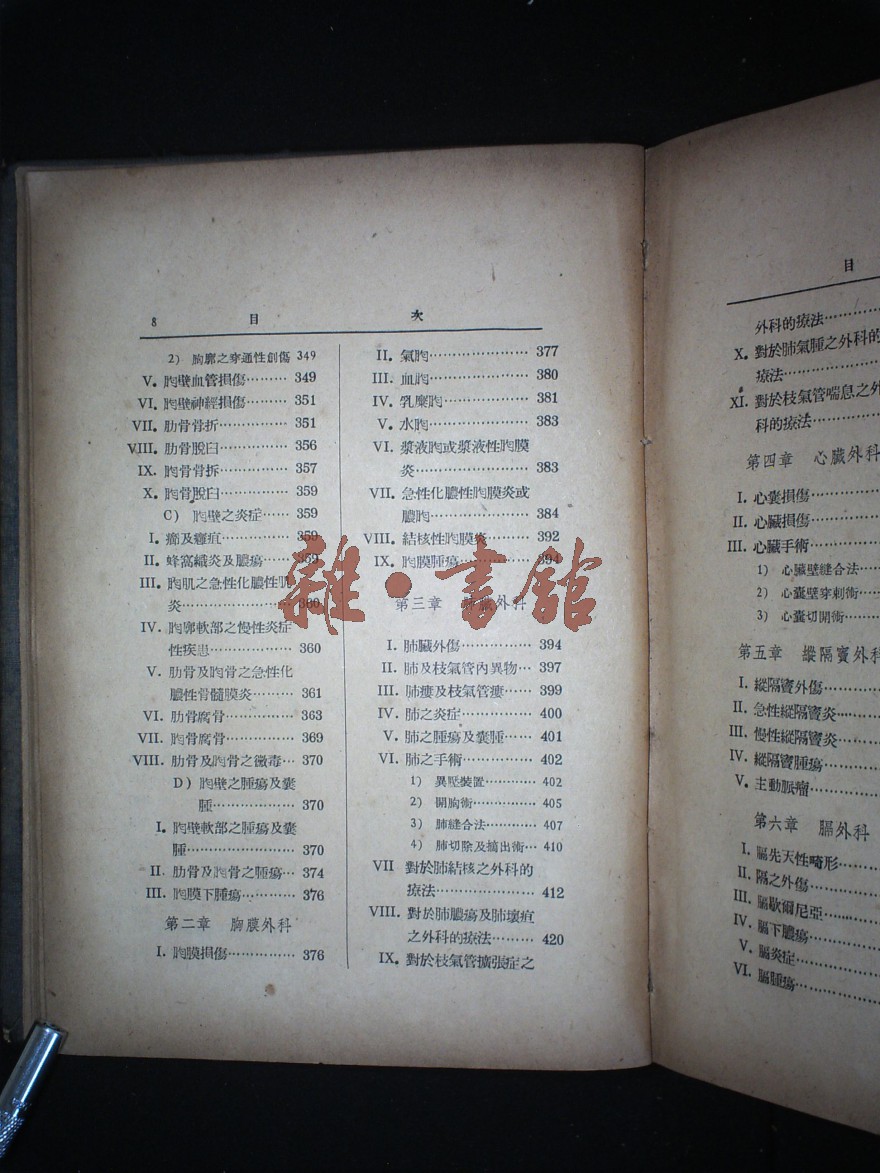 8 目 次
2) 胸廓之穿通性創傷 349
V. 胸壁血管損傷……… 349
VI. 胸壁神經損傷……… 351
VII. 肋骨骨折…………… 351
VIII. 肋骨脫臼…………… 356
IX. 胸骨骨折…………… 357
X. 胸骨脫臼…………… 359
C) 胸壁之炎症…… 359
I. 癤及癰疽…………… 359
II. 蜂窩織炎及膿瘍…… 359
III. 胸肌之急性化膿性肌
炎…………………… 360
IV. 胸廓軟部之慢性炎症
性疾患……………… 360
V. 肋骨及胸骨之急性化
膿性骨髓膜炎……… 361
VI. 肋骨腐骨…………… 363
VII. 胸骨腐骨…………… 369
VIII. 肋骨及胸骨之黴毒… 370
D) 胸壁之腫瘍及囊
腫……………… 370
I. 胸壁軟部之腫瘍及囊
腫…………………… 370
II. 肋骨及胸骨之腫瘍… 374
III. 胸膜下腫瘍………… 376
第二章 胸膜外科
I. 胸膜損傷…………… 376
II. 氣胸………………… 377
III. 血胸………………… 380
IV. 乳糜胸……………… 381
V. 水胸………………… 383
VI. 漿液胸或漿液性胸膜
炎…………………… 383
VII. 急性化膿性胸膜炎或
膿胸………………… 384
VIII. 結核性胸膜炎……… 392
IX. 胸膜腫瘍…………… 394
第三章 肺臟外科
I. 肺臟外傷…………… 394
II. 肺及枝氣管內異物… 397
III. 肺瘻及枝氣管瘻…… 399
IV. 肺之炎症…………… 400
V. 肺之腫瘍及囊腫…… 401
VI. 肺之手術…………… 402
1) 異壓裝置………… 402
2) 開胸術…………… 405
3) 肺縫合法………… 407
4) 肺切除及摘出術… 410
VII 對於肺結核之外科的
療法………………… 412
VIII. 對於肺膿瘍及肺壞疽
之外科的療法……… 420
IX. 對於枝氣管擴張症之
目
外科的療法…………
X. 對於肺氣腫之外科的
療法…………………
XI. 對於枝氣管喘息之外
科的療法……………
第四章 心臟外科
I. 心囊損傷……………
II. 心臟損傷……………
III. 心臟手術……………
1) 心臟壁縫合法……
2) 心囊壁穿刺術……
3) 心囊切開術………
第五章 縱隔竇外科
I. 縱隔竇外傷…………
II. 急性縱隔竇炎………
III. 慢性縱隔竇炎………
IV. 縱隔竇腫瘍…………
V. 主動脈瘤……………
第六章 膈外科
I. 膈先天性畸形………
II. 隔之外傷……………
III. 膈歇爾尼亞…………
IV. 膈下膿瘍……………
V. 膈炎症………………
VI. 膈腫瘍………………
雜·書館